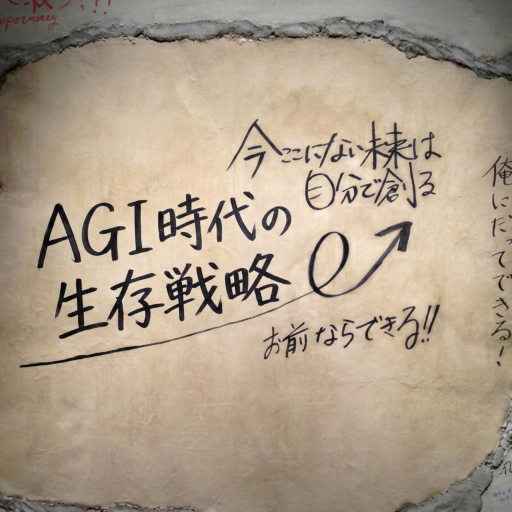 今ここにない未来は
自分で創る
AGI時代の
生存戦略
お前ならできる!!
俺にだってできる!